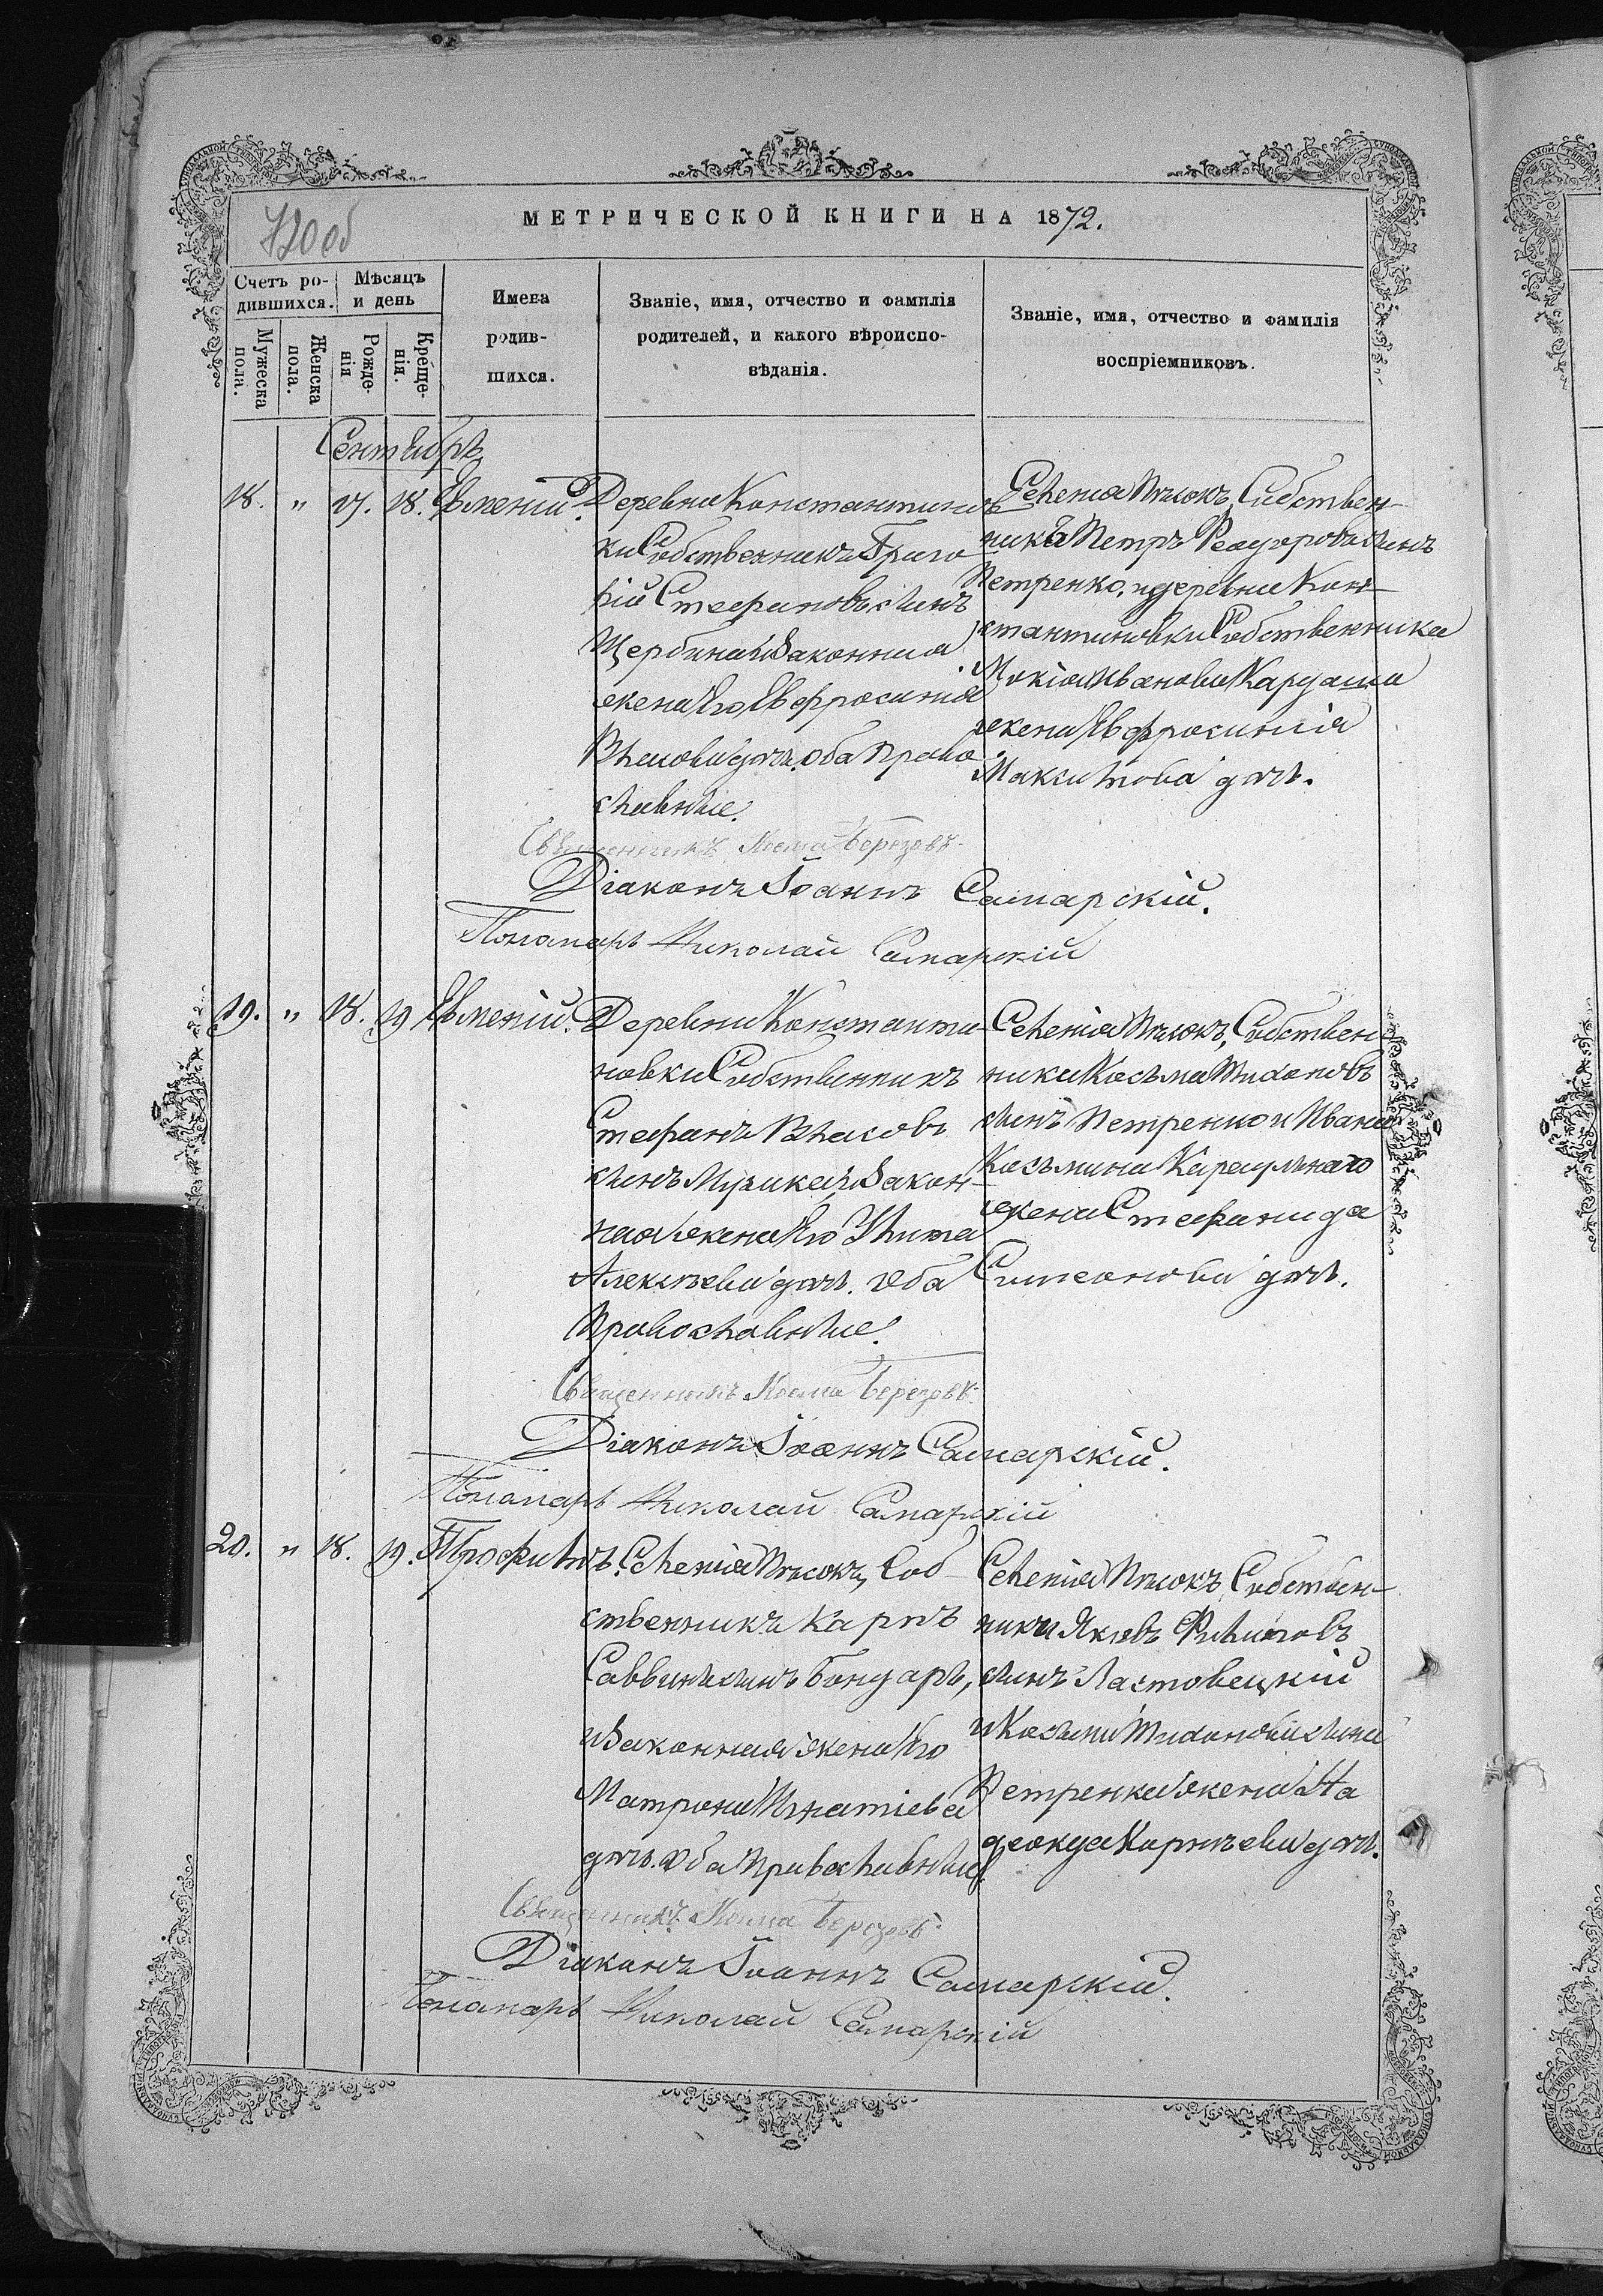 720об
МЕТРИЧЕСКОЙ КНИГИ НА 1872.
Счетъ ро-
дившихся.
Мѣсяцъ
и день
Мужеска
пола.
Женска
пола.
Рожде-
нія
Креще-
нія.
Имена
родив-
шихся.
Званіе, имя, отчество и фамилія
родителей, и какого вѣроиспо-
вѣданія.
Званіе, имя, отчество и фамилія
воспріемниковъ.
Сентябрь
18. " 17. 18. Евменій.
Деревни Константинов
ки Собственникъ Григо
рій Стефановъ сынъ
Щербина и Законная
жена Его, Евфросинія
Власова дочь. оба право
славные.
Селенія Пѣсокъ, Собствен-
никъ Петръ Феодоровъ сынъ
Петренко, и деревни Кон-
стантиновки Собственника
Мокія Иванова Кардаша
жена Евфросинія
Максимова дочь.
Священникъ Косма Березовъ
Діаконъ Іоаннъ Самарскій.
Пономарь Николай Самарскій
19. " 18. 19 Евменій.
Деревни Константи-
новки Собственникъ
Стефанъ Власовъ
сынъ Музыка и Закон-
ная жена Его Улита
Алексѣева дочь. Оба
Православные.
Селенія Пѣсокъ, Собствен-
ники Косьма Тихоновъ
сынъ Петренко и Ивана
Косьмина
жена Стефанида
Симеонова дочь.
Священникъ Косма Березовъ
Діаконъ Іоаннъ Самарскій.
Пономарь Николай Самарскій
20. " 18. 19. Трофимъ.
Селенія Пѣсокъ, Соб-
ственникъ Карпъ
Саввинъ сынъ Бондарь,
и Законная жена Его
Матрона Игнатіева
дочь. Оба Православные.
Селенія Пѣсокъ Собствен-
ники Яковъ Филиповъ
сынъ Ластовецкій
и Косьмы Тихонова сына
Петренка жена На
дежда Карпѣева дочь.
Священникъ Косма Березовъ
Діаконъ Іоаннъ Самарскій.
Пономарь Николай Самарскій